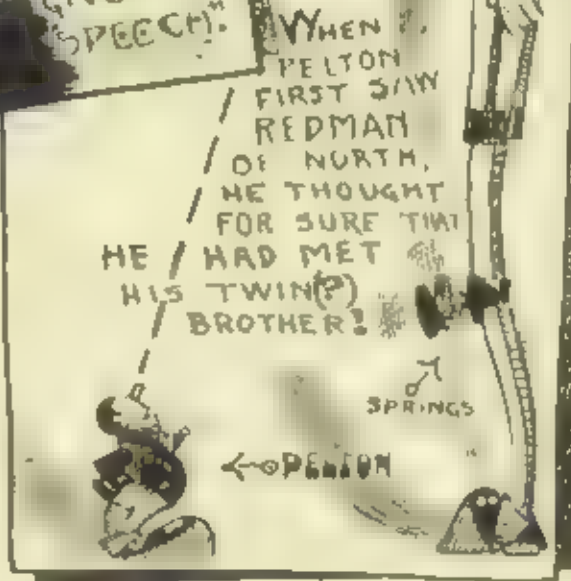 SPEECH".
WHEN
PELTON
FIRST SAW
REDMAN
OF NORTH,
HE THOUGHT
FOR SURE THAT
HE HAD MET
HIS TWIN(?)
BROTHER!
SPRINGS
PELTON